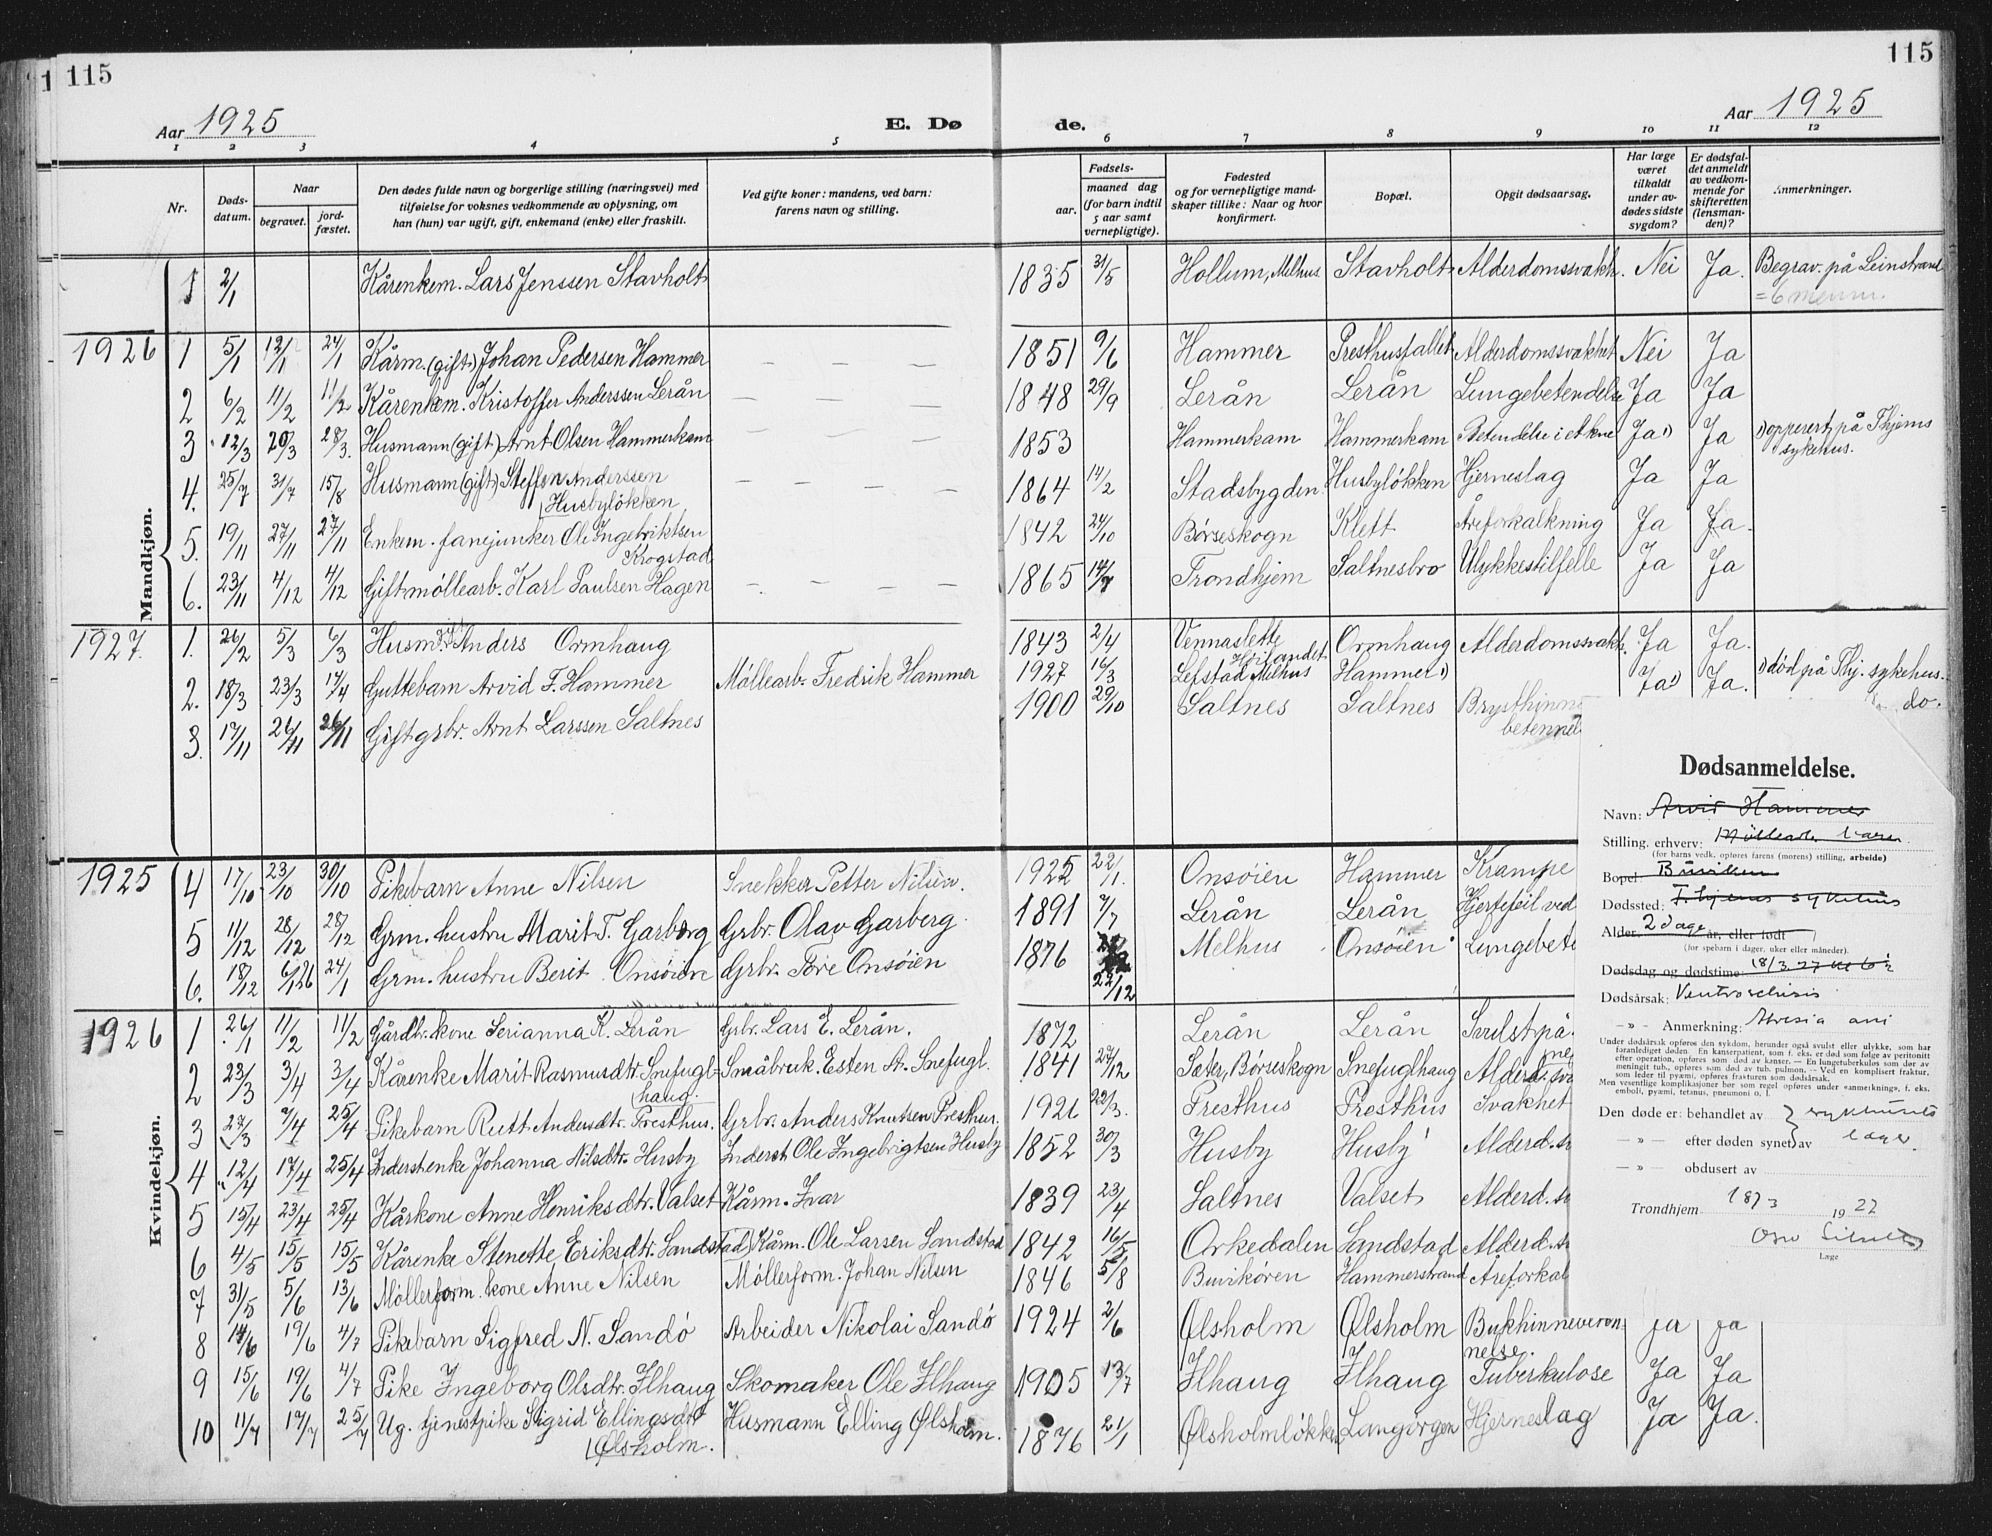 115
115
Aar 1925
E. Dø de.
Aar 1925
1 2 3 4 5 6 7 8 9 10 11 12
Nr.
Døds-datum.
Naar
begravet.
jord-fæstet.
Den dødes fulde navn og borgerlige stilling (næringsvei) med
tilføielse for voksnes vedkommende av oplysning, om
han (hun) var ugift, gift, enkemand (enke) eller fraskilt.
Ved gifte koner: mandens, ved barn:
farens navn og stilling.
Fødsels-
aar.
maaned dag
(for barn indtil
5 aar samt
vernepligtige).
Fødested
og for vernepligtige mand-
skaper tillike: Naar og hvor
konfirmert.
Bopæl.
Opgit dødsaarsag.
Har læge
været
tilkaldt
under av-
dødes sidste
sygdom?
Er dødsfal-
det anmeldt
av vedkom-
mende for
skifteretten
(lensman-
den)?
Anmerkninger.
Mandkjøn.
1 2/1 Kårenkem. Lars Jenssen Stavholt 1835 31/5 Hollum, Melhus Stavholt Alderdomssvakh. Nei Ja. Begrav. på Leinstrand
1926 1 5/1 12/1 24/1 Kårm. (gift) Johan Pedersen Hammer — — — 1851 9/6 Hammer Presthusfallet Alderdomssvakhet Nei Ja
2 6/2 11/2 11/2 Kårenkem. Kristoffer Anderssen Lerån — — — 1848 29/9 Lerån Lerån Lungebetendelse Ja Ja
3 12/3 20/3 28/3. Husmann (gift) Arnt Olsen Hammerkam 1853 Hammerkam Hammerkam Betendelse i et kne Ja 1) Ja 1) opperert på Thjems
sykehus.
4. 25/7 31/7 15/8 Husmann (gift) Steffen Anderssen
Husbyløkken — — — — 1864 14/2 Stadsbygden Husbyløkken Hjerneslag Ja Ja
5. 19/11 27/11 27/11 Enkem. fanejunker Ole Ingebriktsen
Krogstad 1842 24/10 Børseskogn Klett Åreforkalkning Ja Ja.
6. 23/11 4/12 4/12 Gift møllearb. Karl Paulsen Hagen — — 1865 14/7 Trondhjem Saltnesbro Ulykkestilfelle Ja Ja
1927. 1. 26/2 5/3 6/3 Husm. Anders Ormhaug 1843 2/4 Vennaslette
Høilandet Ormhaug Alderdomssvakh. Ja Ja.
2. 18/3 23/3 17/4 Guttebarn Arvid F. Hammer Møllearb. Fredrik Hammer 1927 16/3 Lefstad Melhus Hammer 1) Ja 1) Ja. 1) død på Thj. sykehus.
3. 17/11 26/11 26/11 Gift grbr. Arnt Larssen Saltnes 1900 29/10 Saltnes Saltnes Brysthinne
betennel do.
Kvindekjøn.
1925 4 17/10 23/10 30/10 Pikebarn Anne Nilsen Snekker Petter Nilsen. 1922 22/11. Onsøien Hammer Krampe
5 11/12 28/12 28/12 Grm. hustru Marit T. Garberg Grbr. Olav Garberg. 1891 7/7 Lerån Lerån Hjertefeil ved
6. 18/12 6/1 26 24/1 Grm. hustru Berit Onsøien Grbr. Tore Onsøien 1876 22/12 Melhus Onsøien Lungebete
1926 1 26/1 11/2 11/2 Gårdbr. kone Serianna K. Lerån Grbr. Lars E. Lerån. 1872 Lerån Lerån Svulst på
2 23/3 3/4 3/4 Kårenke Marit Rasmusdtr Snefugl-
haug. Småbruk. Esten A. Snefugl. 1841 27/12 Sæter, Børseskogn Snefuglhaug Alderd. sva
3 27/3 7/4 25/4 Pikebarn Rutt Andersdtr. Presthus. Grbr. Anders Knutsen Presthus. 1926 22/3. Presthus Presthus Svakhet
4 12/4 17/4 25/4 Inderstenke Johanna Nilsdtr. Husby Inderst Ole Ingebrigtsen Husby 1852 30/3 Husby Husby Alderd. sv
5 15/4 23/4 25/4 Kårkone Anne Henriksdtr. Valset Kårm. Ivar 1839 23/4 Saltnes Valset Alderd. sv
6 4/5 15/5 15/5 Kårenke Stenette Eriksdtr. Sandstad Kårm. Ole Larsen Sandstad 1842 16/5 Orkedalen Sandstad Alderd. s
7 31/5 5/6 13/6 Møllerform. kone Anne Nilsen Møllerform. Johan Nilsen 1846 5/8 Buvikøren Hammerstrand Åreforkal
8 14/6 19/6 4/7 Pikebarn Sigfred N. Sandö Arbeider Nikolai Sandö 1924 2/6 Ølsholm Ølsholm Bukhinne
nelse. ja ja
9 15/6 19/6 4/7 Pike Ingeborg Olsdtr. Ilhaug Skomaker Ole Ilhaug 1905 13/7 Ilhaug Ilhaug Tuberkulose Ja Ja
10 11/7 17/7 25/7 Ug. tjenestpike Sigrid Ellingsdtr
Ølsholm. Husmann Elling Ølsholm. 1876 21/1 Ølsholmløkken Langørgen Hjerneslag ja Ja.
Dødsanmeldelse.
Navn: Arvid Hammer
Stilling, erhverv: Møllearb. barn
(for barns vedk. opføres farens (morens) stilling, arbeide)
Bopel Buviken
Dødssted: T.hjems sykehus
Alder 2 dage år, eller født
(for spebarn i dager, uker eller måneder).
Dødsdag og dødstime: 18/3 27 kl 6½
Dødsårsak: Ventroschisis
-»- Anmerkning: Atresia ani
Under dødsårsak opføres den sykdom, herunder også svulst eller ulykke, som har
foranlediget døden. En kanserpatient, som f. eks. er død som følge av peritonitt
efter operation, opføres som død av kanser. — En lungetuberkulos som dør av
meningit tub., opføres som død av tub. pulmon. — Ved en komplisert fraktur,
som leder til pyæmi, opføres frakturen som dødsårsak.
Men vesentlige komplikasjoner bør som regel opføres under «anmerkning», f. eks.
emboli, pyæmi, tetanus, pneumoni o. l.
Den døde er: behandlet av } sykehusets
— » — efter døden synet av læger
— » — obdusert av
Trondhjem 18/3 1927
Læge